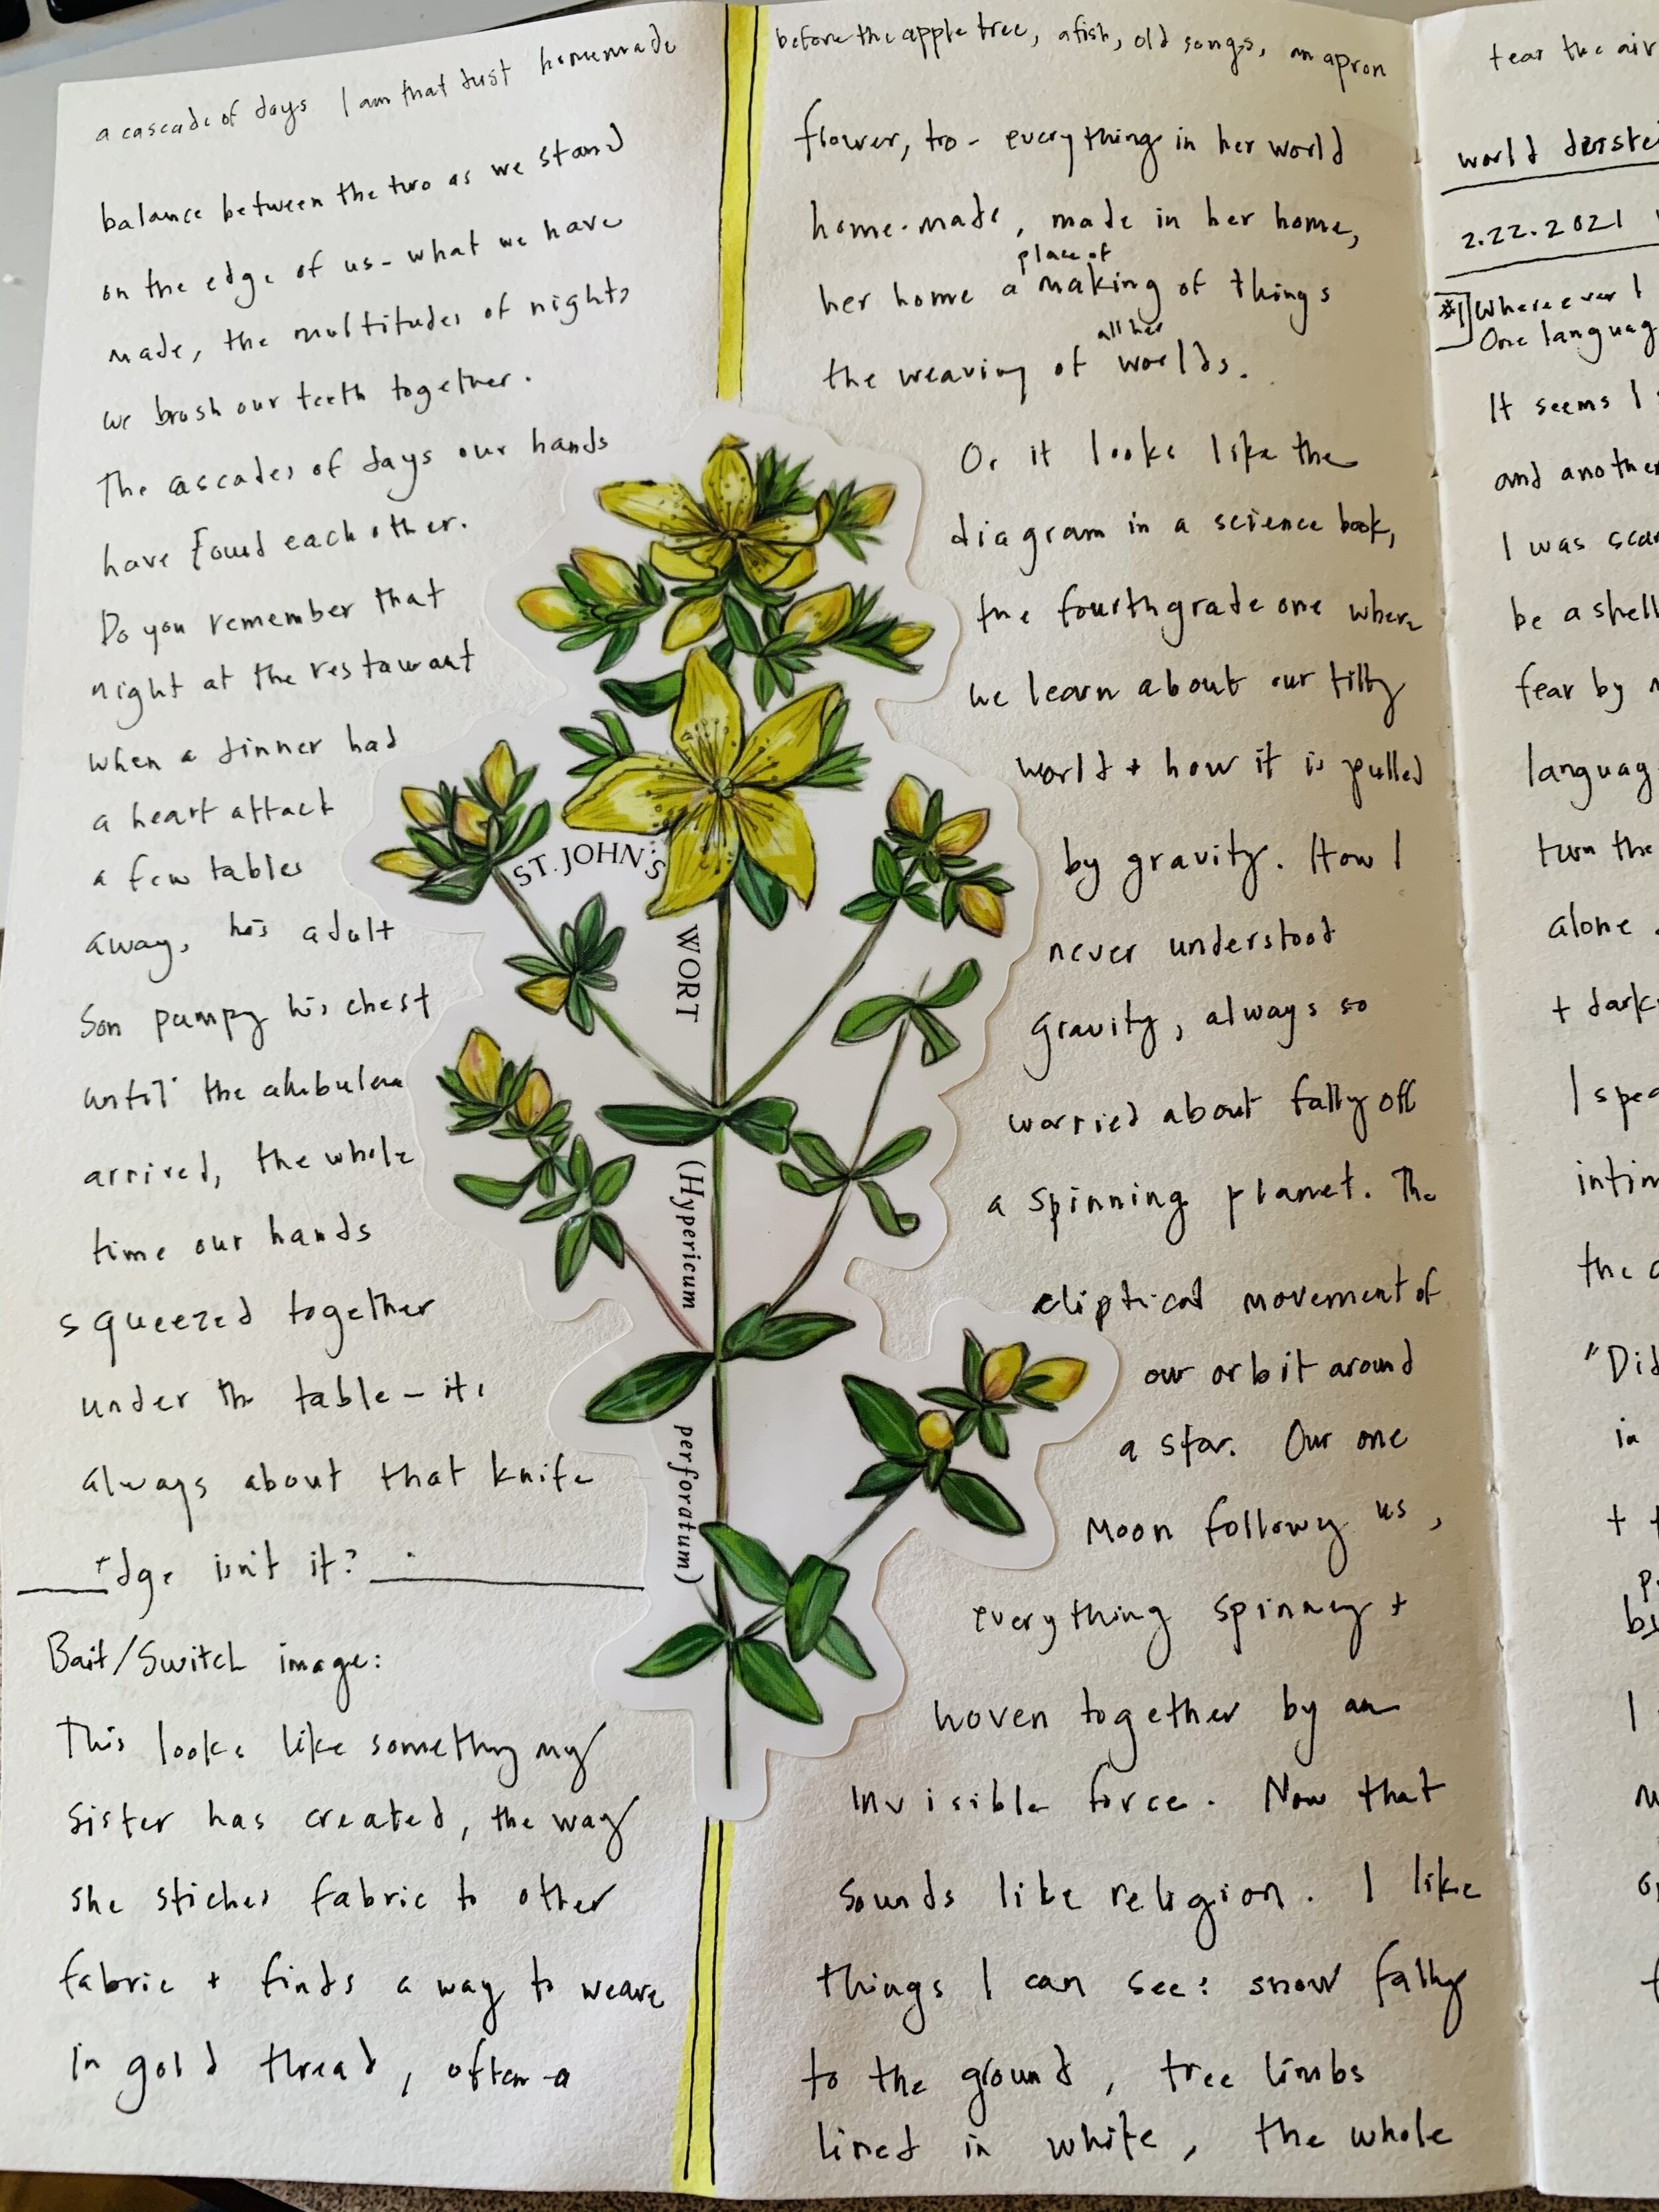 a cascade of days I am that dust homemade
balance between the two as we stand
on the edge of us - what we have
made, the multitudes of nights
we brush our teeth together.
The cascades of days our hands
have found each other.
Do you remember that
night at the restaurant
when a dinner had
a heart attack
a few tables
away, his adult
son pumpy his chest
until the ambulance
arrived, the whole
time our hands
squeezed together
under the table - its
always about that knife
edge isn't it?
Bait/Switch image:
This looks like somethy my
sister has created, the way
she stiches fabric to other
fabric + finds a way to weave
in gold thread, often a
ST. JOHN'S
WORT
(Hypericum
perforatum)
before the apple tree, a fish, old songs, an apron
flower, too - everything in her world
home-made, made in her home,
place of
her home a making of things
all her
the weaving of worlds.
Or it looks like the
diagram in a science book,
the fourth grade one where
we learn about our tilty
world + how it is pulled
by gravity. How I
never understood
gravity, always so
worried about fally off
a spinning planet. The
eliptical movement of
our orbit around
a star. Our one
moon followy us,
everything spinney +
woven together by an
invisible force. Now that
sounds like religion. I like
things I can see: snow fally
to the ground, tree limbs
lined in white, the whole
tear the air
world
2.22.2021
#1 Where ever I
One languag
It seems I
and another
I was scar
be a shell
fear by
languag
turn the
alone.
+ dark
I spea
intim
the
"Did
in
+
by
I